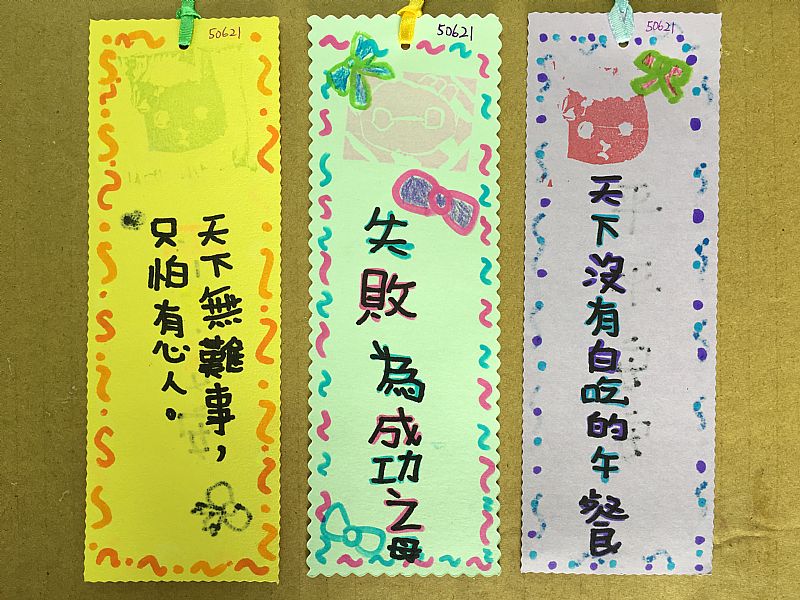 50621
天下無難事，
只怕有心人。
50621
失敗為成功之母
50621
天下沒有白吃的午餐